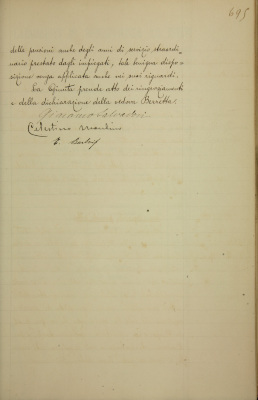 695
delle pensioni anche degli anni di servizio straordi_
nario prestato dagli impiegati, tale benigna dispo=
sizione venga applicata anche nei suoi riguardi.
La Giunta prende atto dei ringraziamenti
e della dichiarazione della vedova Berretta.
Salvadori
Celestino